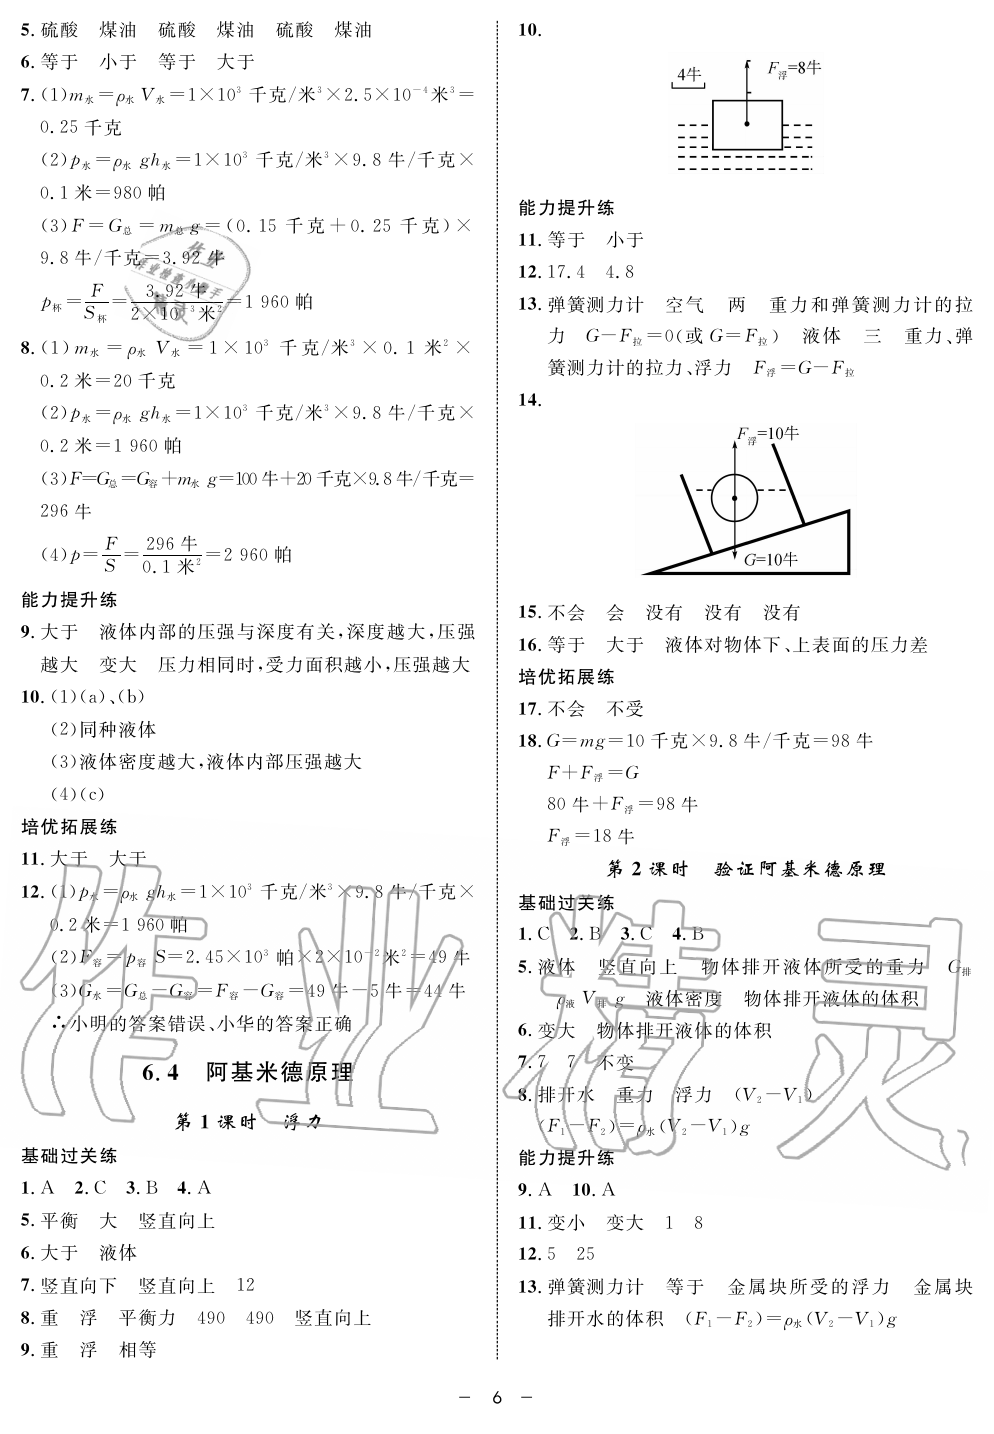 5. 硫酸 煤油 硫酸 煤油 硫酸 煤油
6. 等于 小于 等于 大于
7. (1)m水=ρ水V水=1×10³ 千克/米³×2.5×10⁻⁴米³=
0.25千克
(2)p水=ρ水gh水=1×10³ 千克/米³×9.8牛/千克×
0.1米=980帕
(3)F=G总=m总g=(0.15千克+0.25千克)×
9.8牛/千克=3.92牛
p杯=F/S杯=3.92牛/2×10⁻³米²=1 960帕
8. (1)m水=ρ水V水=1×10³ 千克/米³×0.1米²×
0.2米=20千克
(2)p水=ρ水gh水=1×10³ 千克/米³×9.8牛/千克×
0.2米=1 960帕
(3)F=G总=G容+m水g=100牛+20千克×9.8牛/千克=
296牛
(4)p=F/S=296牛/0.1米²=2 960帕
能力提升练
9. 大于 液体内部的压强与深度有关,深度越大,压强
越大 变大 压力相同时,受力面积越小,压强越大
10. (1)(a)、(b)
(2)同种液体
(3)液体密度越大,液体内部压强越大
(4)(c)
培优拓展练
11. 大于 大于
12. (1)p水=ρ水gh水=1×10³ 千克/米³×9.8牛/千克×
0.2米=1 960帕
(2)F容=p容S=2.45×10³ 帕×2×10⁻²米²=49牛
(3)G水=G总-G容=F容-G容=49牛-5牛=44牛
∴小明的答案错误、小华的答案正确
6.4 阿基米德原理
第1课时 浮力
基础过关练
1. A 2. C 3. B 4. A
5. 平衡 大 竖直向上
6. 大于 液体
7. 竖直向下 竖直向上 12
8. 重 浮 平衡力 490 490 竖直向上
9. 重 浮 相等
10.
4牛
F浮=8牛
能力提升练
11. 等于 小于
12. 17.4 4.8
13. 弹簧测力计 空气 两 重力和弹簧测力计的拉
力 G-F拉=0(或G=F拉) 液体 三 重力、弹
簧测力计的拉力、浮力 F浮=G-F拉
14.
F浮=10牛
G=10牛
15. 不会 会 没有 没有 没有
16. 等于 大于 液体对物体下、上表面的压力差
培优拓展练
17. 不会 不受
18. G=mg=10千克×9.8牛/千克=98牛
F+F浮=G
80牛+F浮=98牛
F浮=18牛
第2课时 验证阿基米德原理
基础过关练
1. C 2. B 3. C 4. B
5. 液体 竖直向上 物体排开液体所受的重力 G排
ρ液V排g 液体密度 物体排开液体的体积
6. 变大 物体排开液体的体积
7. 7 7 不变
8. 排开水 重力 浮力 (V₂-V₁)
(F₁-F₂)=ρ水(V₂-V₁)g
能力提升练
9. A 10. A
11. 变小 变大 1 8
12. 5 25
13. 弹簧测力计 等于 金属块所受的浮力 金属块
排开水的体积 (F₁-F₂)=ρ水(V₂-V₁)g
- 6 -
作业精灵